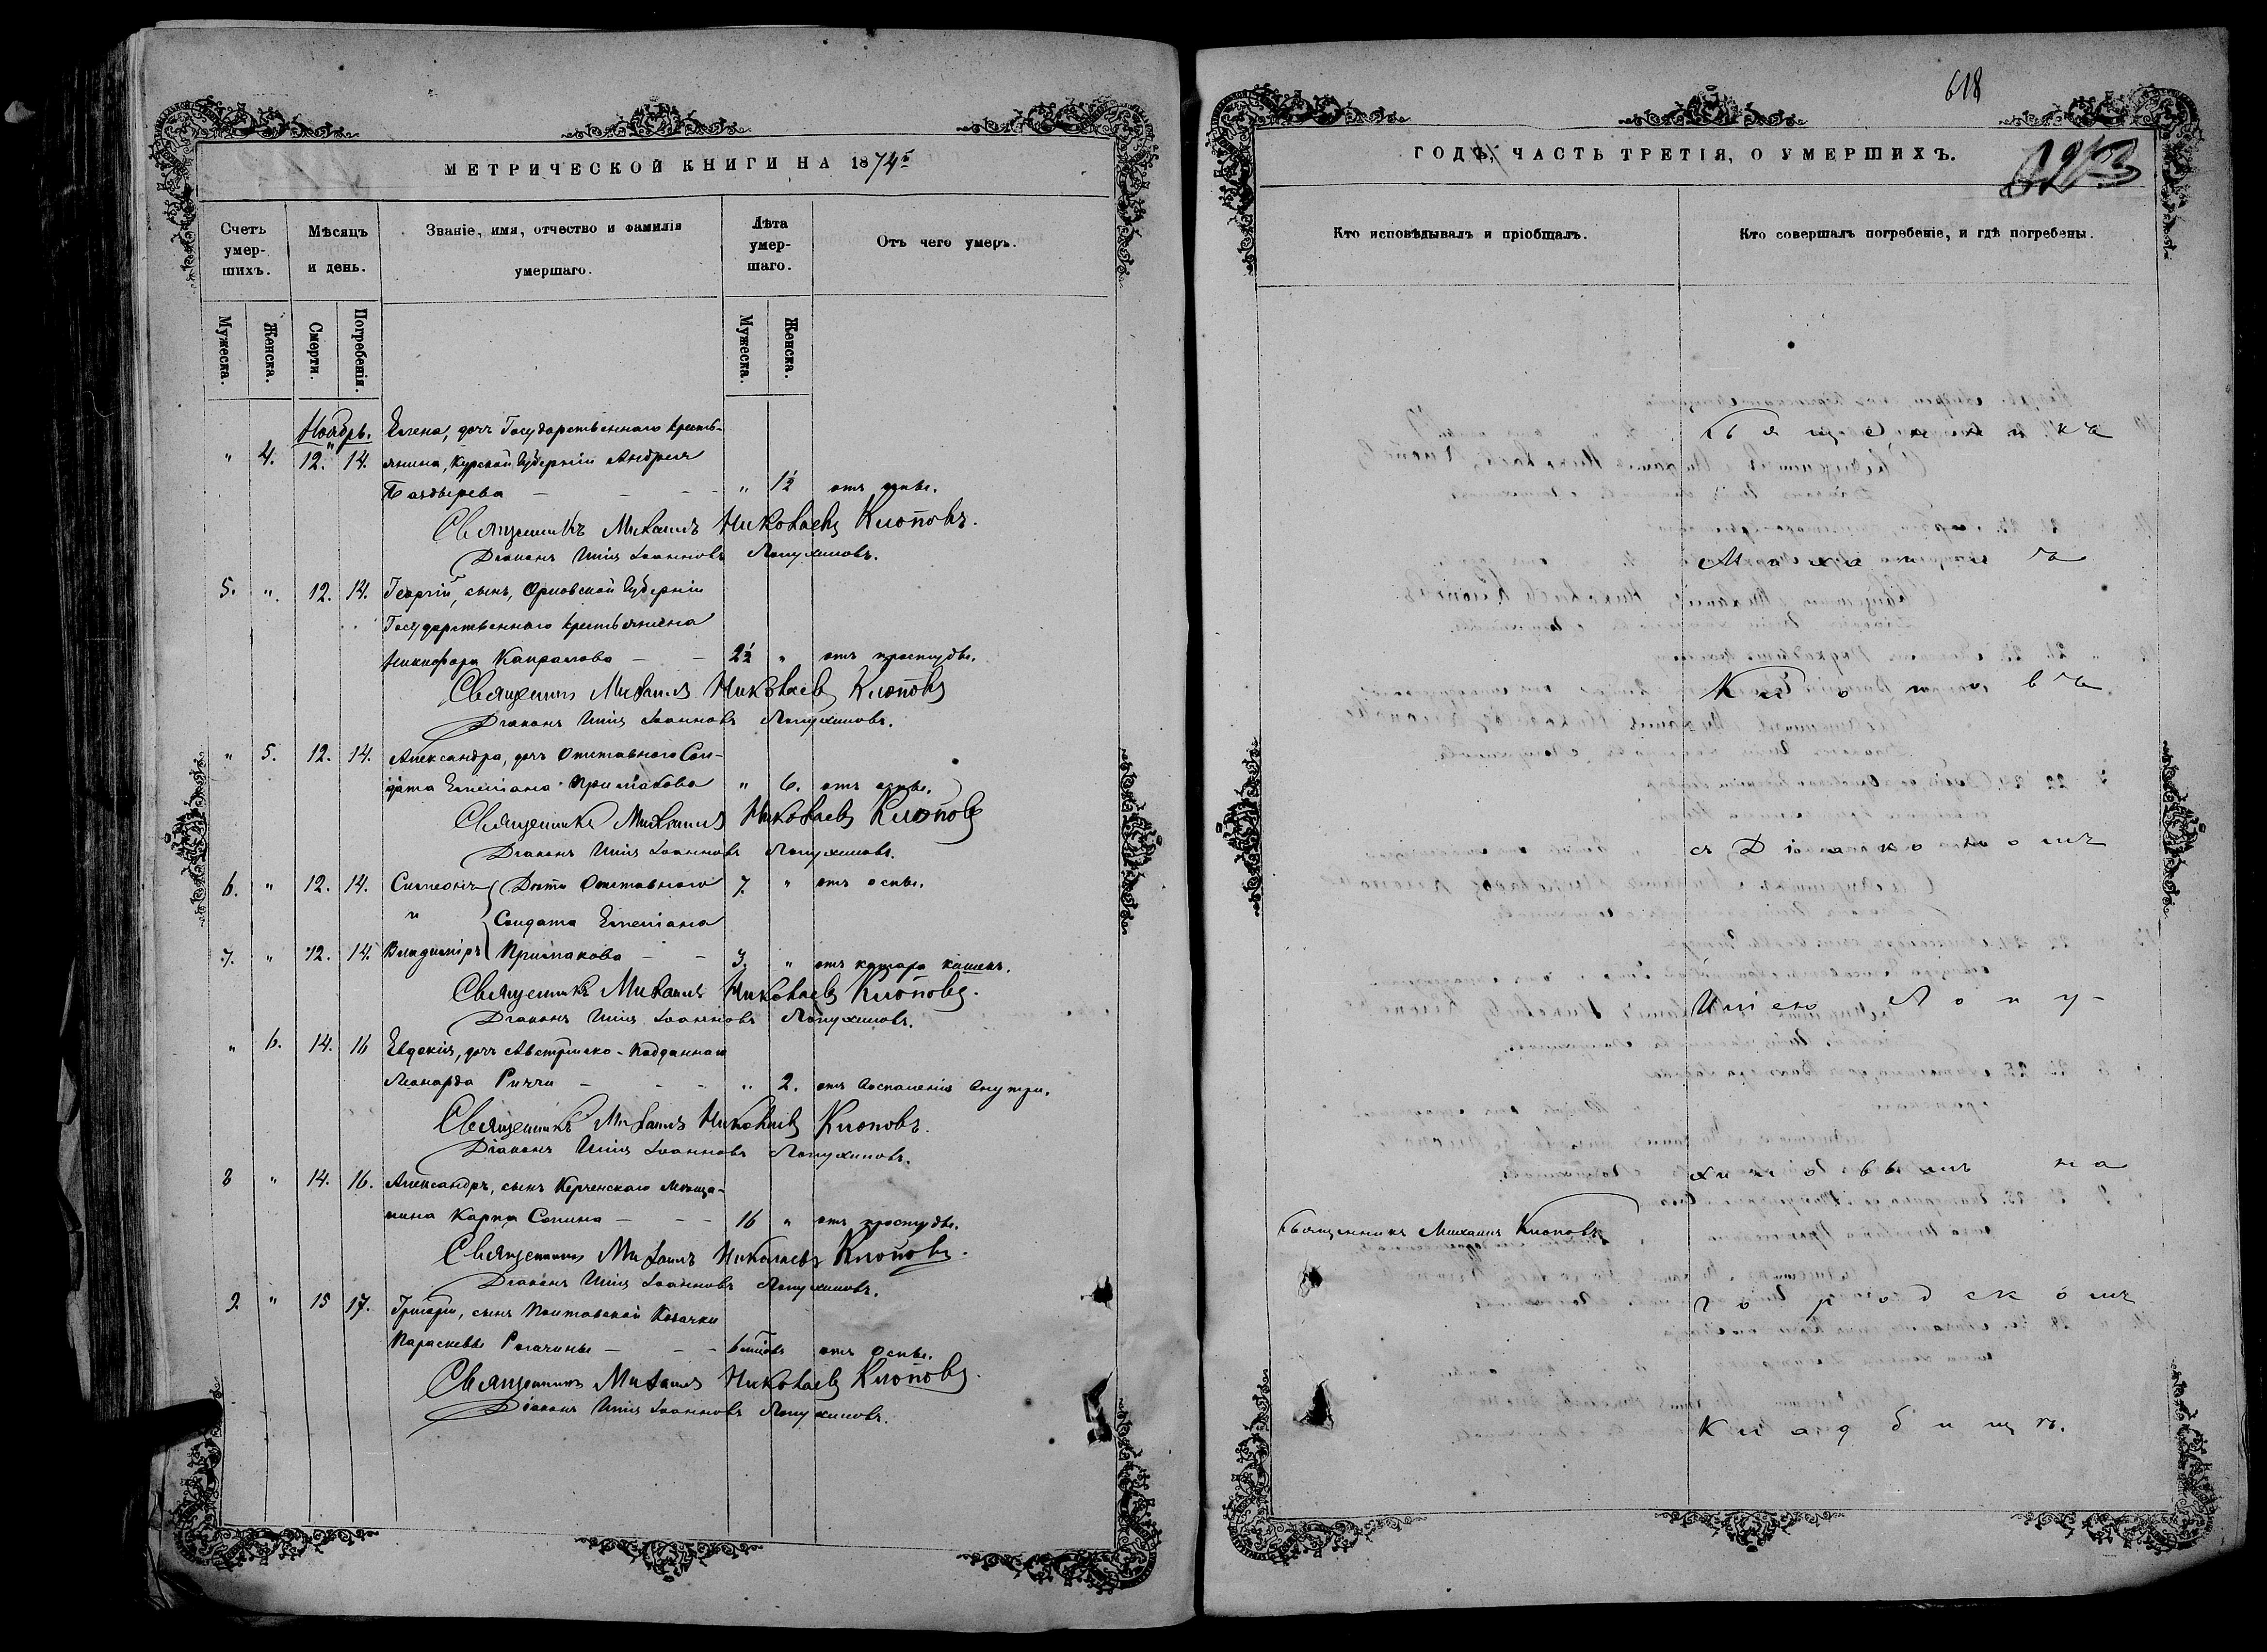 МЕТРИЧЕСКОЙ КНИГИ НА 1874й
Счетъ умер-шихъ.
Мѣсяцъ и день.
Званіе, имя, отчество и фамилія умершаго.
Лѣта умер-шаго.
Отъ чего умеръ.
Мужеска.
Женска.
Смерти.
Погребенія.
Мужеска.
Женска.
Ноябрь.
Елена, дочь Государственнаго кресть-
" 4. 12. 14. янина, Курской Губерніи Андрея
" 1½ отъ оспы.
Священникъ Михаилъ Николаевъ Клоповъ.
Діаконъ Илія Іоанновъ Лопухиновъ.
5. " 12. 14. Георгій, сынъ, Орловской Губерніи
Государственнаго крестьянина
Никифора Капралова 2½ " отъ простуды.
Священникъ Михаилъ Николаевъ Клоповъ
Діаконъ Илія Іоанновъ Лопухиновъ.
" 5. 12. 14. Александра, дочь Отставнаго Сол-
дата Емеліана Примакова " 6. отъ оспы.
Священникъ Михаилъ Николаевъ Клоповъ
Діаконъ Илія Іоанновъ Лопухиновъ.
6. " 12. 14. Симеонъ Дѣти Отставнаго 7. " отъ оспы.
и Солдата Емеліана
7. " 12. 14. Владиміръ Примакова 3. " отъ катара кишекъ.
Священникъ Михаилъ Николаевъ Клоповъ.
Діаконъ Илія Іоанновъ Лопухиновъ.
" 6. 14. 16 Евдокія, дочь Австрійско-подданнаго
Леонарда Риччи " 2. отъ воспаленія внутри.
Священникъ Михаилъ Николаевъ Клоповъ.
Діаконъ Илія Іоанновъ Лопухиновъ.
8 " 14. 16. Александръ, сынъ Керченскаго мѣща-
нина Карпа Сопина 16 " отъ простуды.
Священникъ Михаилъ Николаевъ Клоповъ.
Діаконъ Илія Іоанновъ Лопухиновъ.
9. " 15 17. Григорій, сынъ Полтавской Козачки
Параскевы Рогачины 6 мѣсяц. отъ оспы.
Священникъ Михаилъ Николаевъ Клоповъ.
Діаконъ Илія Іоанновъ Лопухиновъ.
618
ГОДЪ, ЧАСТЬ ТРЕТІЯ, О УМЕРШИХЪ.
Кто исповѣдывалъ и пріобщалъ.
Кто совершалъ погребеніе, и гдѣ погребены.
Священникъ
Михаилъ
Клоповъ
съ Діакономъ
Иліею Лопу-
хиновымъ на
Священникъ Михаилъ Клоповъ
городскомъ
кладбищѣ.